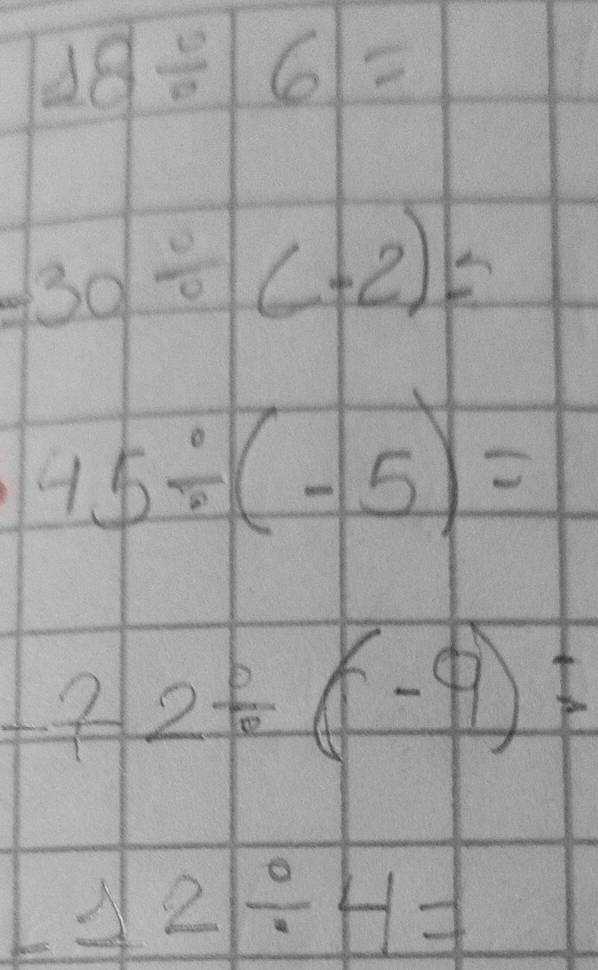 18 ÷ 6 =
-30 ÷ (-2) =
45 ÷ (-5) =
-72 ÷ (-9) =
-12 ÷ 4 =